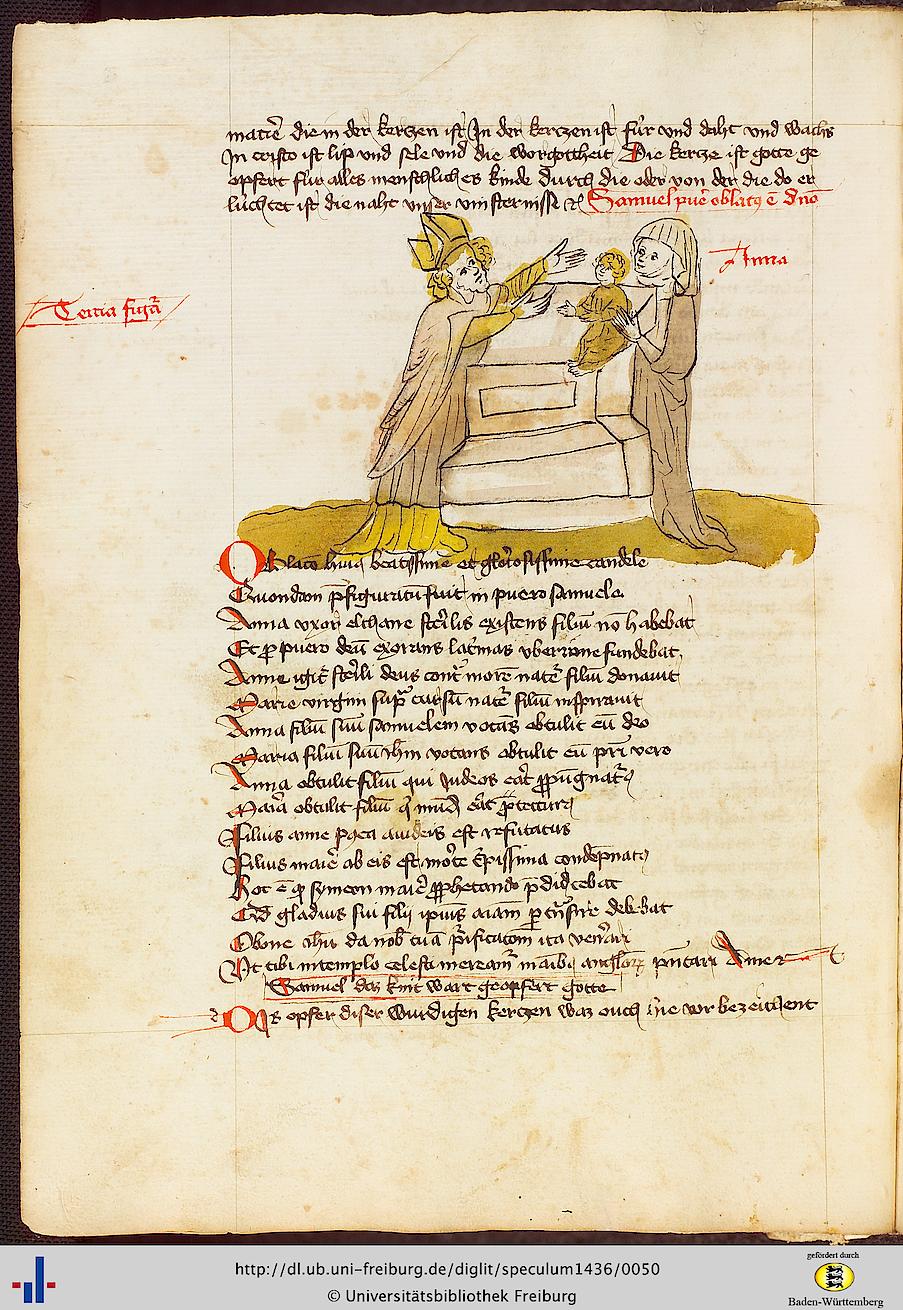 matiẽ die in der kerczen ist Jn der kerczen ist fúr vnd daht vnd wachs
Jn cristo ist lip vnd sele vnd die wor gottheit Die kercze ist gotte ge
opfert fur alles menschliches kinde durch die oder von der die do er
lúchtet ist die naht vnser vinsternisse Samuel puer oblatꝯ ẽ dño
Anna
Tercia figãa
Oblacõ huiꝯ beatissime et glõosissime candele
Quondam p̃figuratũ fuit in puero samuele
Anna vxor elchane stẽilis existens filiũ nõ habebat
Et pro puero deũ exorans lac̃mas vberrime fundebat
Anne igit̃ stẽili deus cont̃ morẽ natẽ filiũ donauit
Marie virgini sup̃ cursũ natẽ filiũ inspirauit
Anna filiũ suũ samuelem vocãs obtulit eũ deo
Maria filiũ suũ ihm̃ vocans obtulit eũ pr̃i vero
Anna obtulit filiũ qui Judeos erat ꝓpugnatꝰ
Maria obtulit filiũ q̃ mũdũ erat p̃tecturꝰ
Filius anne postea a iudeis est refutatus
Filius marie ab eis est morte t̃pissima condẽpnatꝰ
Hoc ẽ qd symeon marie ꝓphetando p̃dicebat
Qd gladius sui filij ipiuˢ aĩam ꝑtñsire debebat
O bone ihũ da nob̃ tuã p̃sentacõm ita veñari
Vt tibi in templo celesti mereamr̃ manibꝯ angloꝝ pñtari Amen
Samuel daz kint wart geopfert gotte
Das opfer diser wurdigen kerczen waz ouch hie vor bezeichent
http://dl.ub.uni-freiburg.de/diglit/speculum1436/0050
© Universitätsbibliothek Freiburg
gefördert durch
Baden-Württemberg